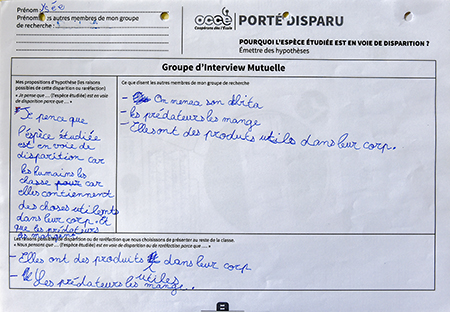 Prénom :
Prénoms des autres membres de mon groupe
de recherche :
occe
Coopérons dès l'École
PORTÉ DISPARU
POURQUOI L'ESPÈCE ÉTUDIÉE EST EN VOIE DE DISPARITION ?
Émettre des hypothèses
Groupe d'Interview Mutuelle
Mes propositions d'hypothèse (les raisons
possibles de cette disparition ou raréfaction)
« Je pense que .... (l'espèce étudiée) est en voie de
disparition parce que .... »
Je pence que
l'éspèce étudiée
est en voie de
disparition car
les humains les
chasse car
elles contiennent
des choses utilent
dans leur corp. Et
que les prédateurs
les mangent
Ce que disent les autres membres de mon groupe de recherche
- On menea son abita
- les prédateurs les mange
- Elles ont des produits utils dans leur corp.
Les raisons possibles de disparition ou de raréfaction que nous choisissons de présenter au reste de la classe.
« Nous pensons que .... (espèce étudiée) est en voie de disparition ou de raréfaction parce que .... »
- Elles ont des produits dans leur corp
utiles
- Les prédateurs les mange.